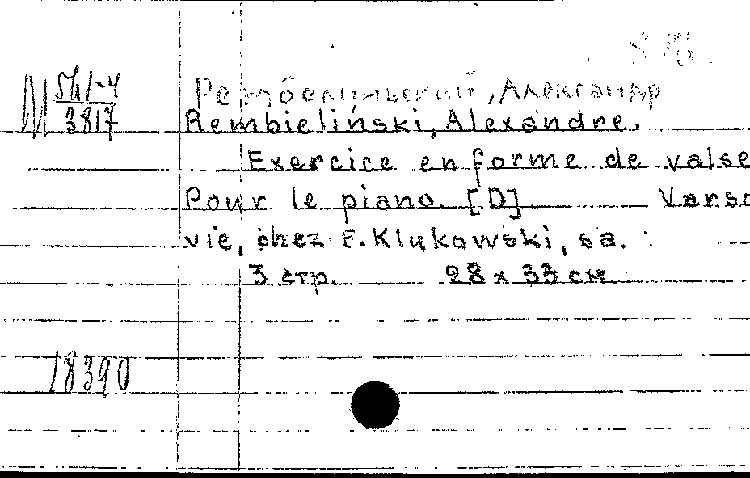 М 5Н/-4
3817
Рембелиньский, Александр
Rembieliński, Alexandre.
Exercice en forme de valse
Pour le piano. [D] Varso
vie, chez F. Klukowski, sa.
3 стр. 28 x 33 см.
18390